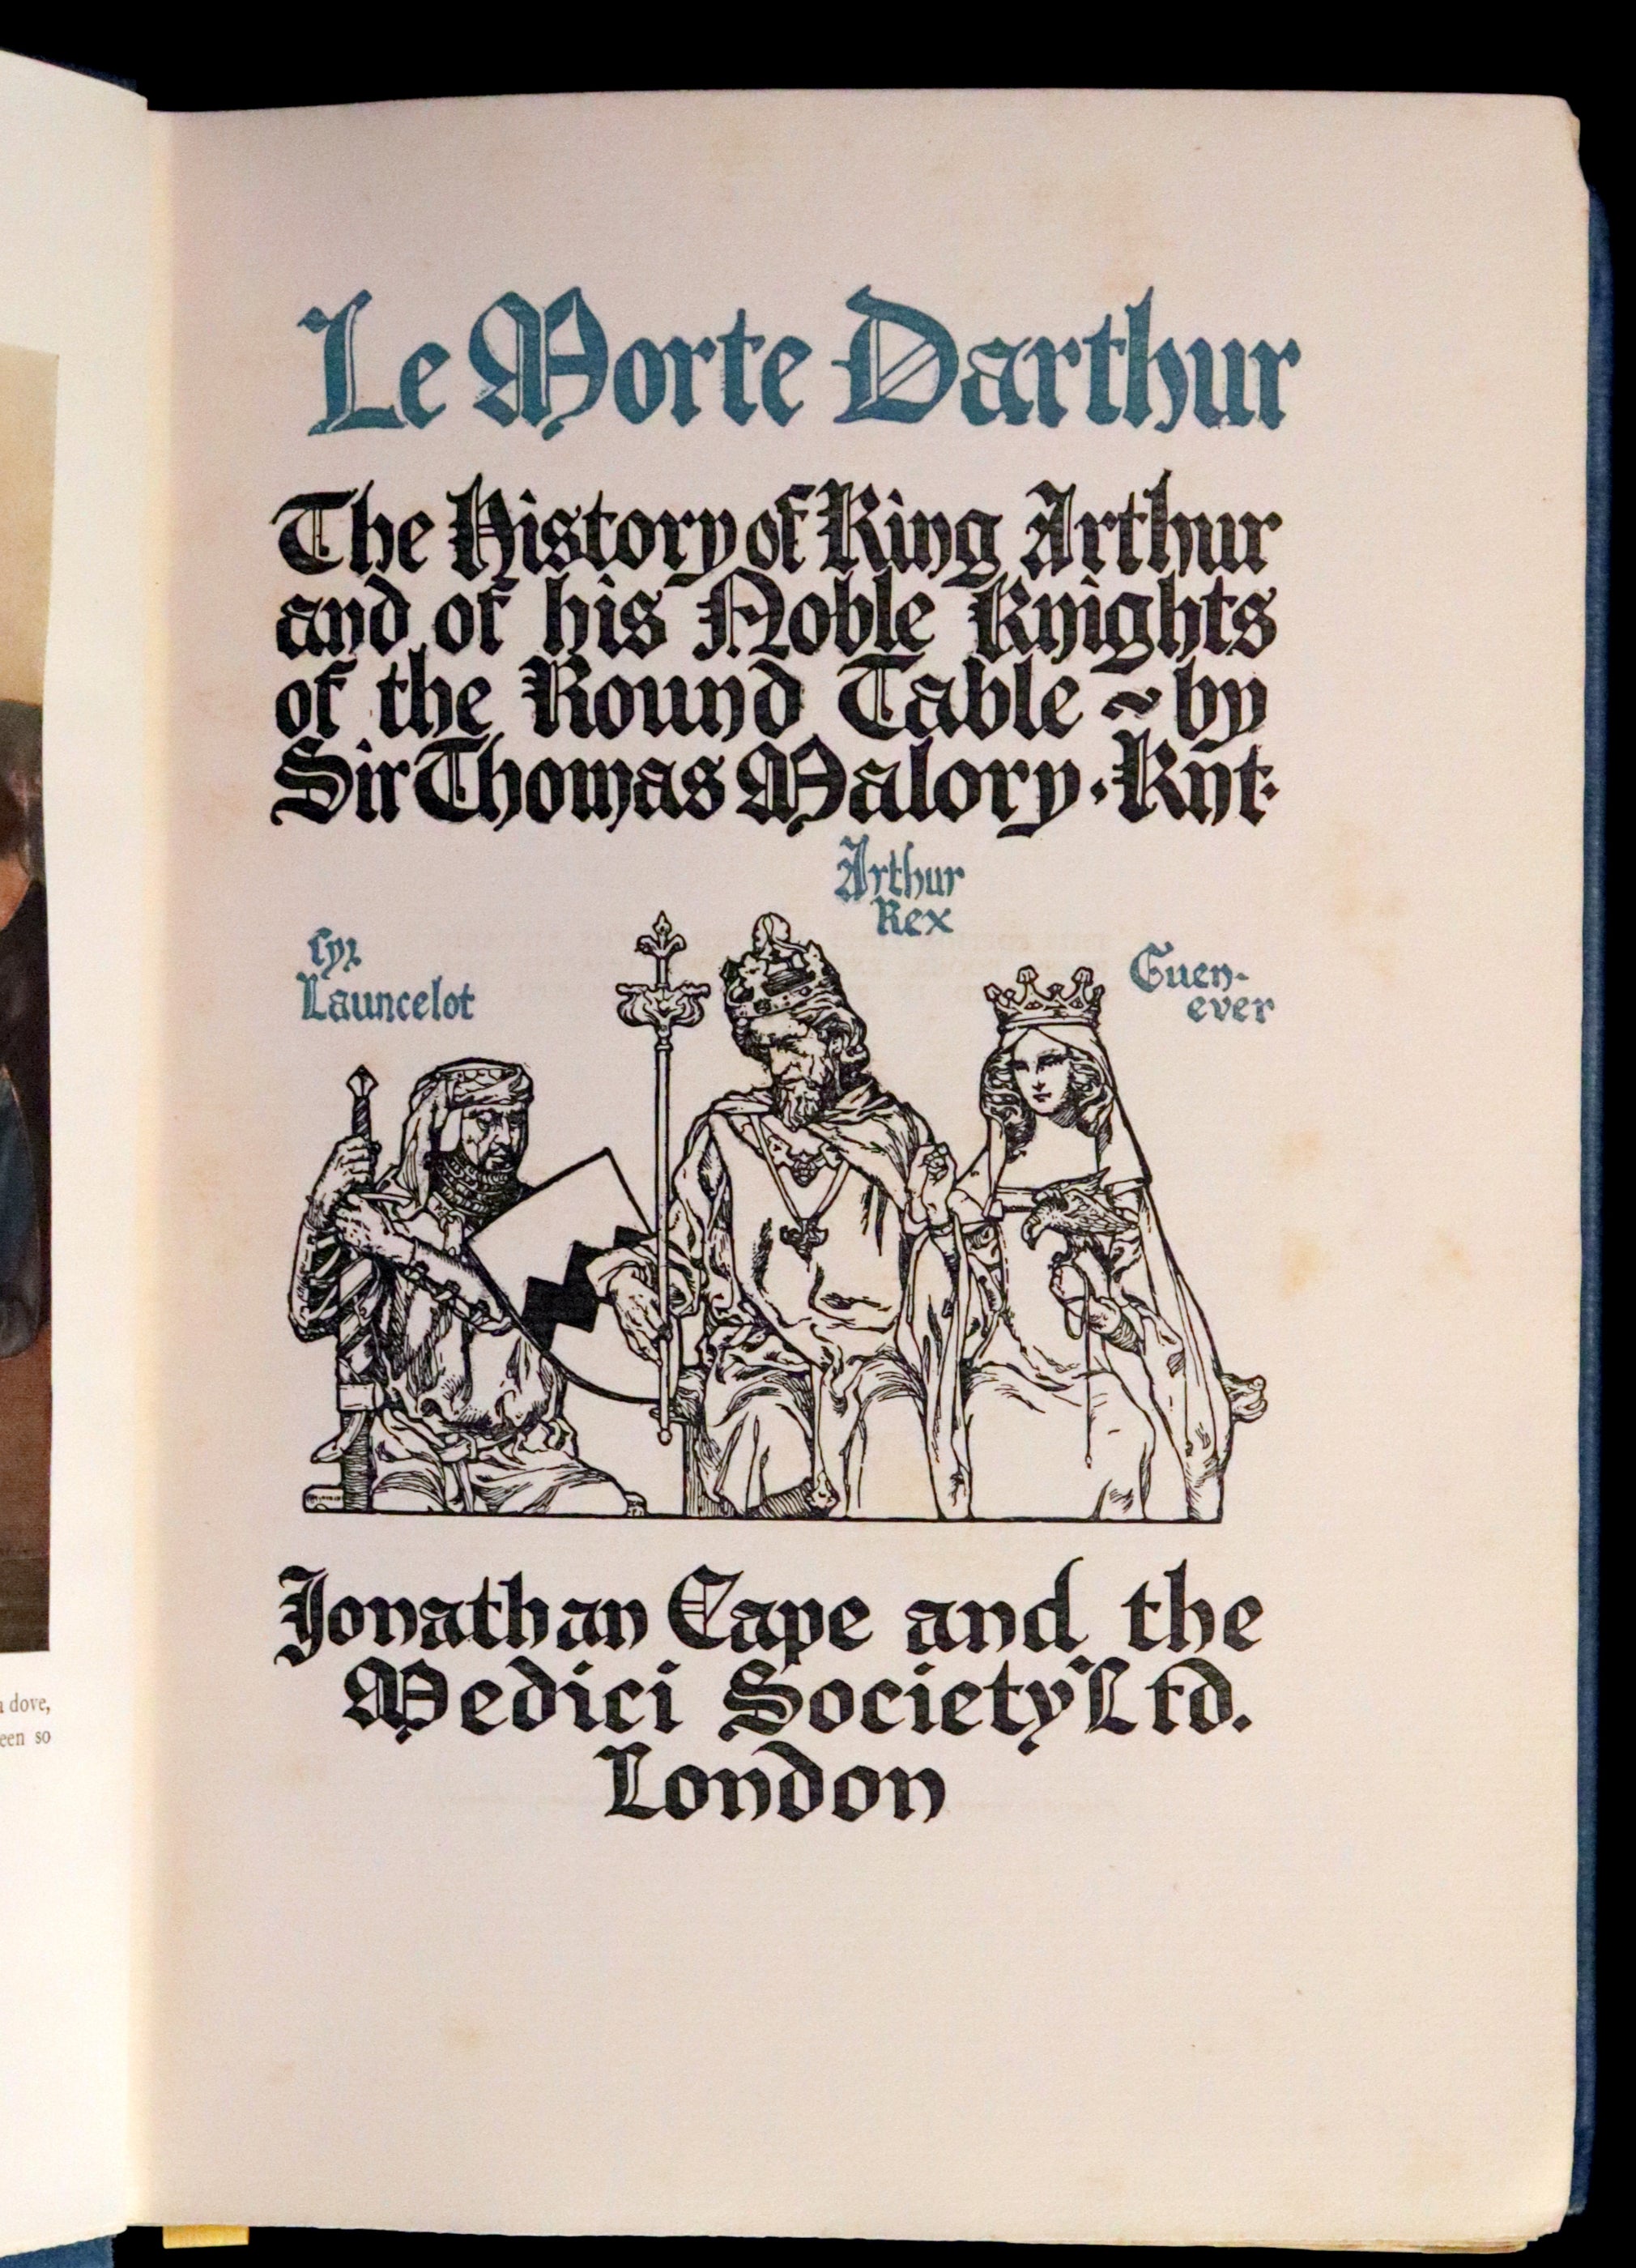 Le Morte Darthur
The History of King Arthur
and of his Noble Knights
of the Round Table ~ by
Sir Thomas Malory · Knt·
Arthur
Rex
Syr
Launcelot
Guen-
ever
Jonathan Cape and the
Medici Society Ltd.
London
dove,
een so